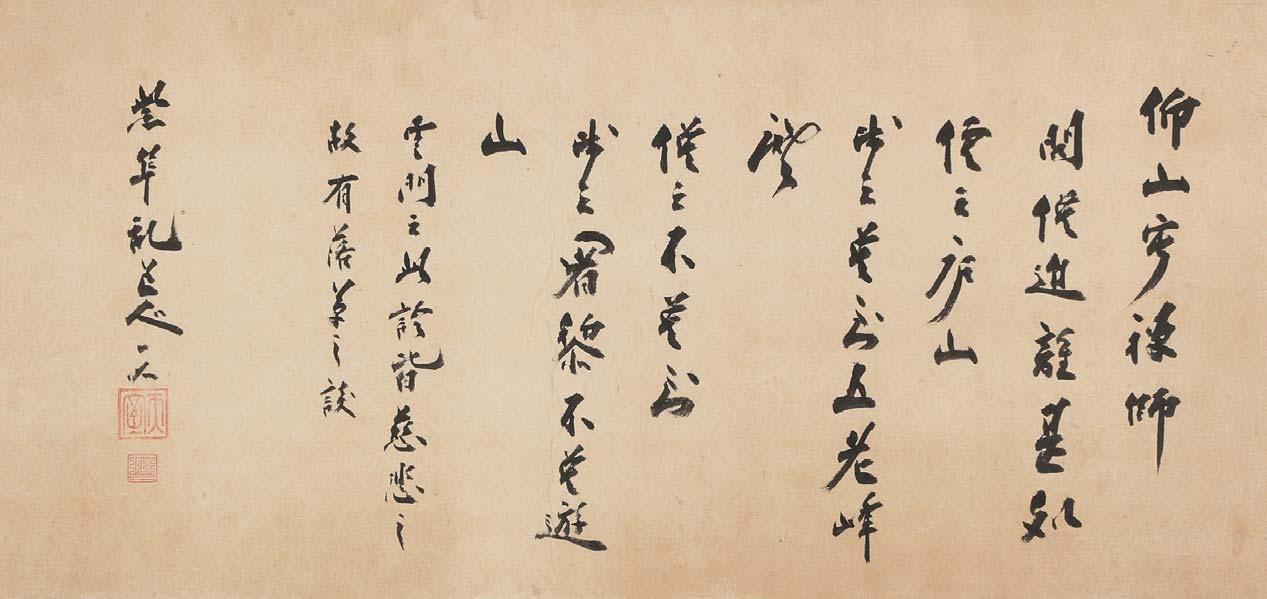 仰山寂禅師
問僧近離甚処
僧云庐山
師云曾到五老峰
麼
僧云不曾到
師云闍黎不曾遊
山
雲門云此語皆慈悲之
故有落草之談
紫 道人